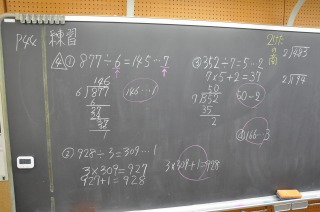 P44 練習
① 877÷6=145…7
146
6)877
6
27
24
38
1
146…1
② 928÷3=309…1
3×309=927
927+1=928
3×309+1=928
③ 352÷7=5…2
7×5+2=37
50
7)352
35
2
50…2
④ 166…3
2)485
2)94